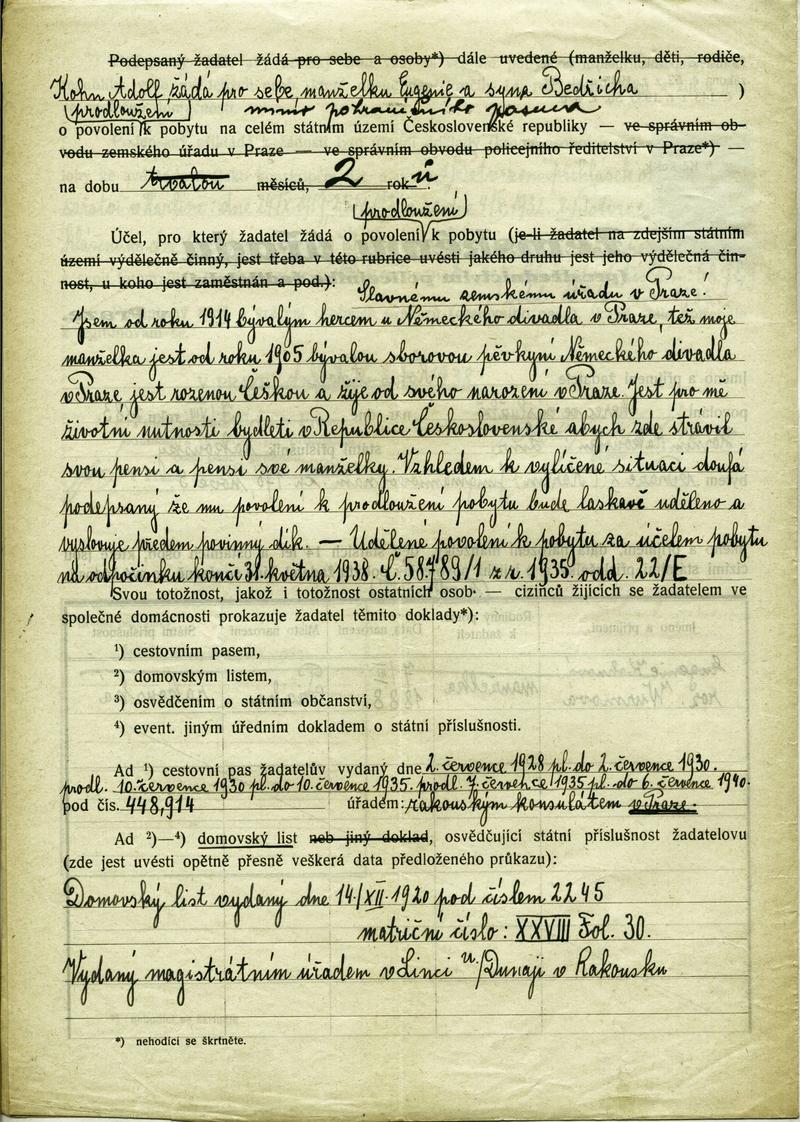 Podepsaný žadatel žádá pro sebe a osoby*) dále uvedené (manželku, děti, rodiče,
Kohn Adolf žádá pro sebe, manželku Eugenie a syna Bedřicha )
(prodloužení) mimo pohraničního pasma
o povolení k pobytu na celém státním území Československé republiky — ve správním ob-
vodu zemského úřadu v Praze — ve správním obvodu policejního ředitelství v Praze*) —
na dobu trvalou měsíců, 2 rok ů.
(prodloužení)
Účel, pro který žadatel žádá o povolení k pobytu (je-li žadatel na zdejším státním
území výdělečně činný, jest třeba v této rubrice uvésti jakého druhu jest jeho výdělečná čin-
nost, u koho jest zaměstnán a pod.): Slavnému zemskému úřadu v Praze!
Jsem od roku 1914 bývalým hercem u Německého divadla v Praze, též moje
manželka jest od roku 1905 bývalou sborovou pěvkyní Německého divadla
v Praze, jest rozenou Češkou a žije od svého narození v Praze. Jest pro mě
životní nutností bydleti v Republice Československé abych zde strávil
svou pensi a pensi své manželky. Vzhledem k vylíčené situaci doufá
podepsaný že mu povolení k prodloužení pobytu bude laskavě uděleno a
vyslovuje předem povinný dík. — Udělené povolení k pobytu za účelem pobytu
na odpočinku končí 31. května 1938. Č. 58789/1 z r. 1935. odd. 22/E
Svou totožnost, jakož i totožnost ostatních osob — cizinců žijících se žadatelem ve
společné domácnosti prokazuje žadatel těmito doklady*):
¹) cestovním pasem,
²) domovským listem,
³) osvědčením o státním občanství,
⁴) event. jiným úředním dokladem o státní příslušnosti.
Ad ¹) cestovní pas žadatelův vydaný dne 2. července 1928 pl. do 2. července 1930.
prodl. 10. července 1930 pl. do 10. července 1935. prodl. 7. července 1935 pl. do 6. července 1940.
pod čís. 448,914 úřadem: rakouským konsulátem v Praze.
Ad ²)—⁴) domovský list neb jiný doklad, osvědčující státní příslušnost žadatelovu
(zde jest uvésti opětně přesně veškerá data předloženého průkazu):
Domovský list vydaný dne 14/XII. 1920 pod číslem 2245
matriční číslo: XXVIII Fol. 30.
Vydaný magistrátním úřadem v Linci n./Dunaji v Rakousku
*) nehodící se škrtněte.